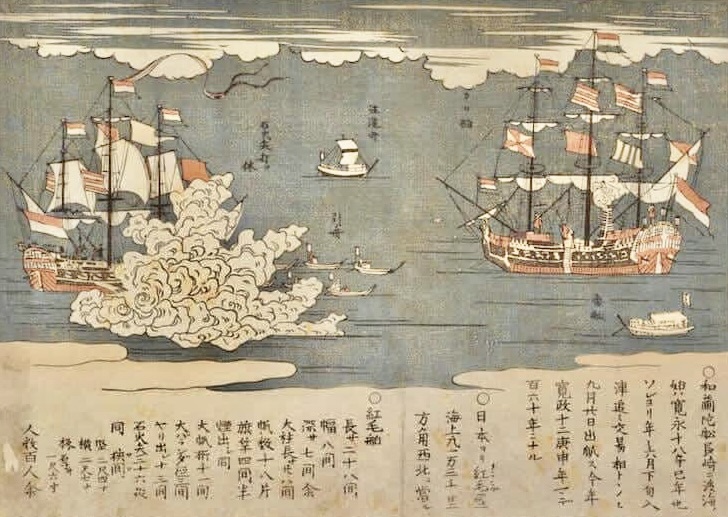 入リ船
注進舟
石火矢打ツ
体
引舟
番船
○和蘭陀船長崎ヘ渡海
始ハ寛永十八辛巳年也
ソレヨリ年々六月下旬入
津追々交易相トヽノヒ
九月廿日出帆ス今年
寛政十二庚申年マデ
百六十年ニナル
○日本ヨリ紅毛国マデ
海上凡一万三千里
方角西北ニ當ル
○紅毛船
長サ二十八間
幅八間
深サ七間余
大柱長サ
帆数十八片
旗竿四間半
煙出シ二間
大帆桁十一間
三間
ヤリ出シ十三間
石火矢三十六挺
同挾間
竪二尺四寸
横二尺七寸
一尺六寸
人数百人余